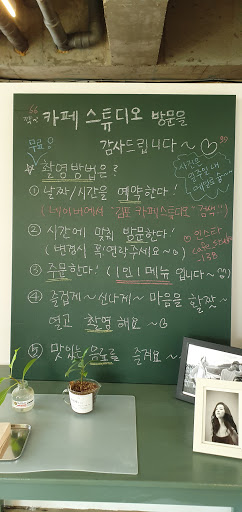 66
카페 스튜디오 방문을
감사드립니다~♡
99
무료?
사진은
일주일 내
☆촬영방법은?
① 날짜/시간을 예약한다!
(네이버에서 "김포 카페스튜디오" 검색!!)
② 시간에 맞춰 방문한다!
(변경시 꼭! 연락주세요~☺)
♡인스타
cafe_studio
_138
③ 주문한다! (1인 1메뉴 입니다~^^)
④ 즐겁게~ 신나게~ 마음을 활짝~
열고 촬영 해요~♡
⑤ 맛있는 음료를 즐겨요~